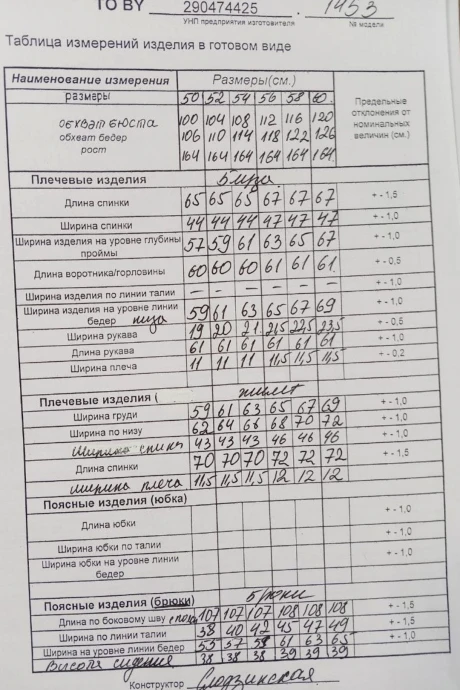 ТО BY 290474425 . 1453
УНП предприятия изготовителя № модели
Таблица измерений изделия в готовом виде
Наименование измерения Размеры(см.) Предельные отклонения от номинальных величин (см.)
размеры 50 52 54 56 58 60
100 104 108 112 116 120
обхват бедер 106 110 114 118 122 126
рост 164 164 164 164 164 164
Плечевые изделия
Длина спинки 65 65 65 67 67 67 + - 1,5
Ширина спинки 44 44 44 47 47 47 + - 1,0
Ширина изделия на уровне глубины проймы 57 59 61 63 65 67 + - 1,0
Длина воротника/горловины 60 60 60 61 61 61 + - 0,5
Ширина изделия по линии талии – – – – – – + - 1,0
Ширина изделия на уровне линии бедер низа 59 61 63 65 67 69 + - 1,0
Ширина рукава 19 20 21 21,5 22,5 23,5 + - 0,5
Длина рукава 61 61 61 61 61 61 + - 1,0
Ширина плеча 11 11 11 11,5 11,5 11,5 + - 0,2
Плечевые изделия ( жилет
Ширина груди 59 61 63 65 67 69 + - 1,0
Ширина по низу 62 64 66 68 70 72 + - 1,0
Ширина спинки 43 43 43 46 46 46 + - 1,0
Длина спинки 70 70 70 72 72 72 + - 1,5
ширина плеча 11,5 11,5 11,5 12 12 12
Поясные изделия (юбка)
Длина юбки + - 1,0
Ширина юбки по талии + - 1,0
Ширина юбки на уровне линии бедер + - 1,0
Поясные изделия (брюки) Брюки
Длина по боковому шву 107 107 107 108 108 108 + - 1,5
Ширина по линии талии 38 40 42 45 47 49 + - 1,5
Ширина на уровне линии бедер 61 63 65 + - 1,0
Высота сидения 38 38 38 39 39 39
Конструктор